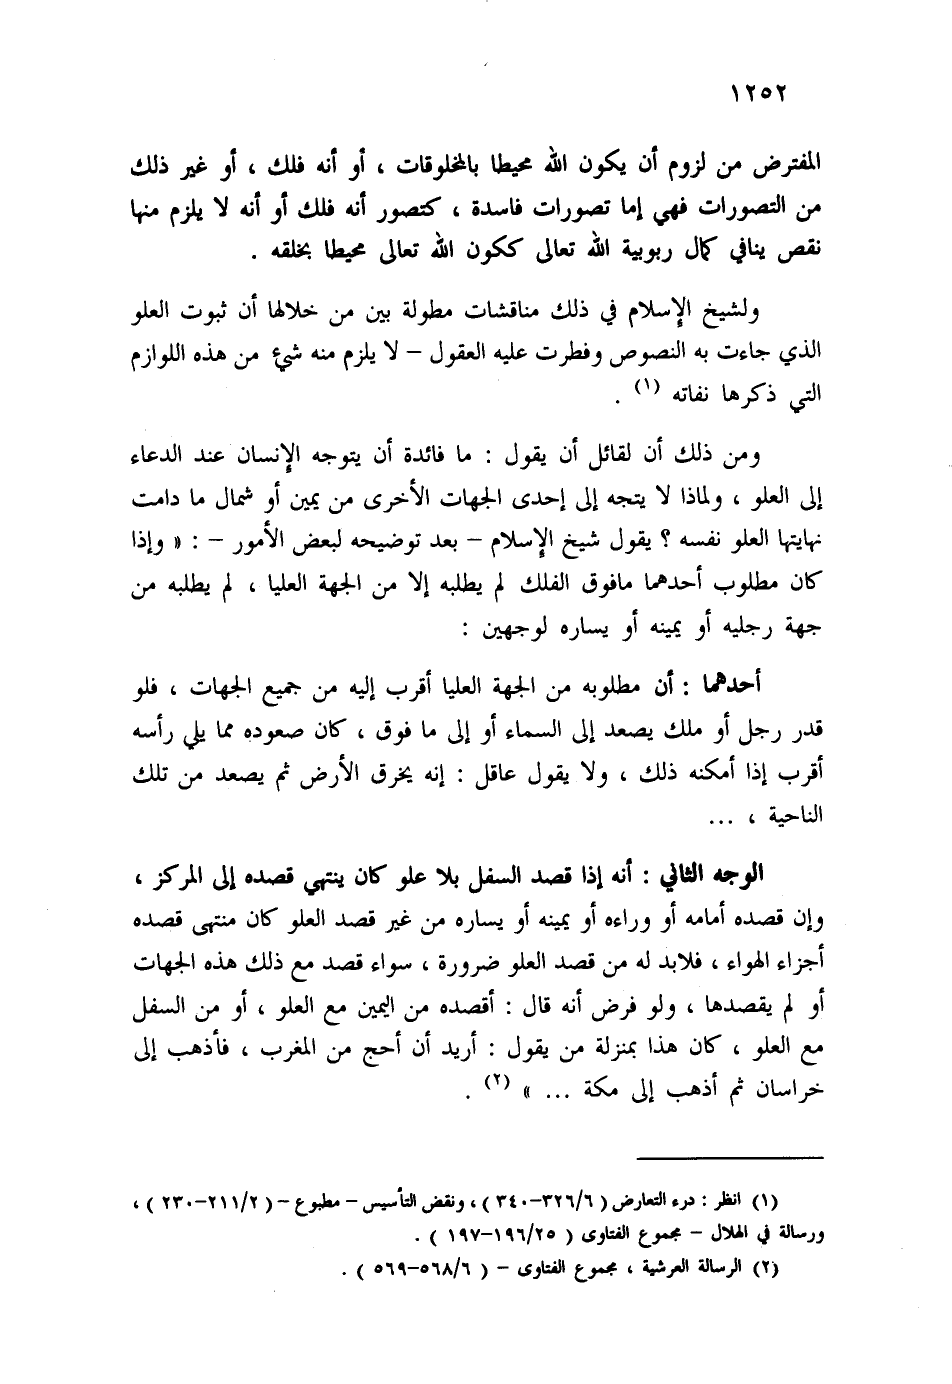 ١٢٥٢
المفترض من لزوم أن يكون الله محيطا بالمخلوقات ، أو أنه فلك ، أو غير ذلك
من التصورات فهي إما تصورات فاسدة ، كتصور أنه فلك أو أنه لا يلزم منها
نقص ينافي كمال ربوبية الله تعالى ككون الله تعالى محيطا بخلقه .
ولشيخ الإسلام في ذلك مناقشات مطولة بين من خلالها أن ثبوت العلو
الذي جاءت به النصوص وفطرت عليه العقول – لا يلزم منه شيء من هذه اللوازم
التي ذكرها نفاته (١) .
ومن ذلك أن لقائل أن يقول : ما فائدة أن يتوجه الإنسان عند الدعاء
إلى العلو ، ولماذا لا يتجه إلى إحدى الجهات الأخرى من يمين أو شمال ما دامت
نهايتها العلو نفسه ؟ يقول شيخ الإسلام – بعد توضيحه لبعض الأمور – : « وإذا
كان مطلوب أحدهما مافوق الفلك لم يطلبه إلا من الجهة العليا ، لم يطلبه من
جهة رجليه أو يمينه أو يساره لوجهين :
أحدهما : أن مطلوبه من الجهة العليا أقرب إليه من جميع الجهات ، فلو
قدر رجل أو ملك يصعد إلى السماء أو إلى ما فوق ، كان صعوده مما يلي رأسه
أقرب إذا أمكنه ذلك ، ولا يقول عاقل : إنه يخرق الأرض ثم يصعد من تلك
الناحية ، ...
الوجه الثاني : أنه إذا قصد السفل بلا علو كان ينتهي قصده إلى المركز ،
وإن قصده أمامه أو وراءه أو يمينه أو يساره من غير قصد العلو كان منتهى قصده
أجزاء الهواء ، فلابد له من قصد العلو ضرورة ، سواء قصد مع ذلك هذه الجهات
أو لم يقصدها ، ولو فرض أنه قال : أقصده من اليمين مع العلو ، أو من السفل
مع العلو ، كان هذا بمنزلة من يقول : أريد أن أحج من المغرب ، فأذهب إلى
خراسان ثم أذهب إلى مكة ... » (٢) .
(١) انظر : درء التعارض ( ٣٢٦/٦–٣٤٠ ) ، ونقض التأسيس – مطبوع – ( ٢١١/٢–٢٣٠ ) ،
ورسالة في الهلال – مجموع الفتاوى ( ١٩٦/٢٥–١٩٧ ) .
(٢) الرسالة العرشية ، مجموع الفتاوى – ( ٥٦٨/٦–٥٦٩ ) .